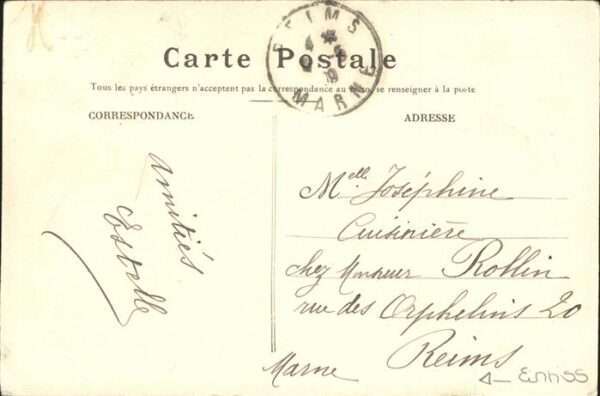 Carte Postale
Tous les pays étrangers n'acceptent pas la correspondance au recto, se renseigner à la poste
CORRESPONDANCE
ADRESSE
REIMS
MARNE
Amitiés
Estelle
Melle Joséphine
Cuisinière
chez Monsieur Rollin
rue des Orphelins 20
Reims
Marne